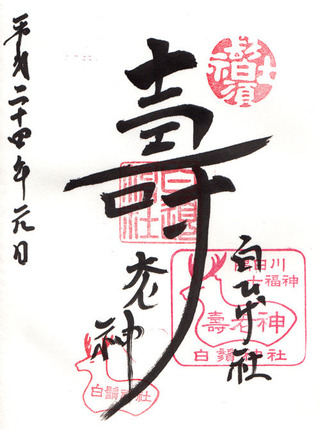 隅田川
七福神
壽老神
白鬚神社
白ひげ社
壽老神
白鬚神社
白鬚神社
平成二十四年元日